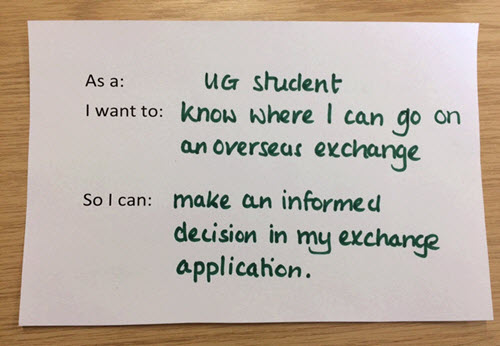 As a: UG student
I want to: know where I can go on
an overseas exchange
So I can: make an informed
decision in my exchange
application.